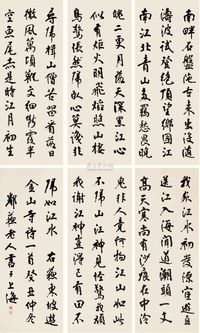 我家江水初發源宦遊直
送江入海聞道潮頭一丈
高天寒尚有沙痕在中泠
南畔石盤陀古來出沒隨
濤波試登絕頂望鄉國江
南江北青山多羈愁畏晚
尋歸楫山僧苦留看落日
微風萬頃靴文細斷霞半
空魚尾赤是時江月初生
魄二更月落天深黑江心
似有炬火明飛焰照山棲
鳥驚悵然歸臥心莫識非
鬼非人竟何物江山如此
不歸山江神見怪驚我頑
我謝江神豈得已有田不
歸如江水 右東坡遊
金山寺詩一首癸丑仲冬
鄰蘇老人書于上海